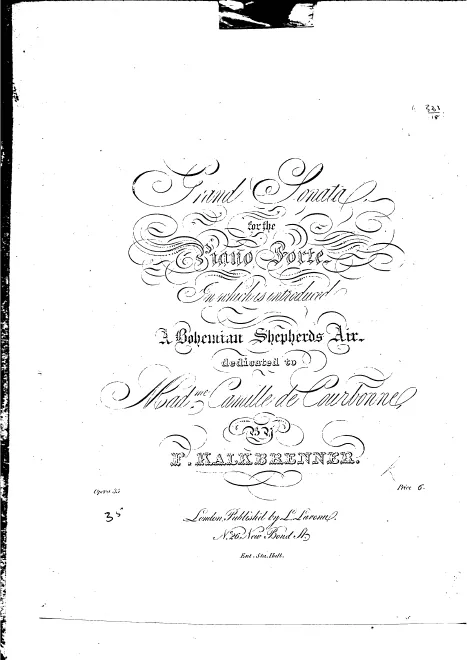 331
18
Grand Sonata,
for the
Piano Forte,
In which is introduced
A Bohemian Shepherds Air,
dedicated to
Mad.me Camille de Courbonne,
BY
F. KALKBRENNER.
Opera 35
Price 6.
35
London, Published by L. Lavenu,
N. 26 New Bond St.
Ent. Sta. Hall.